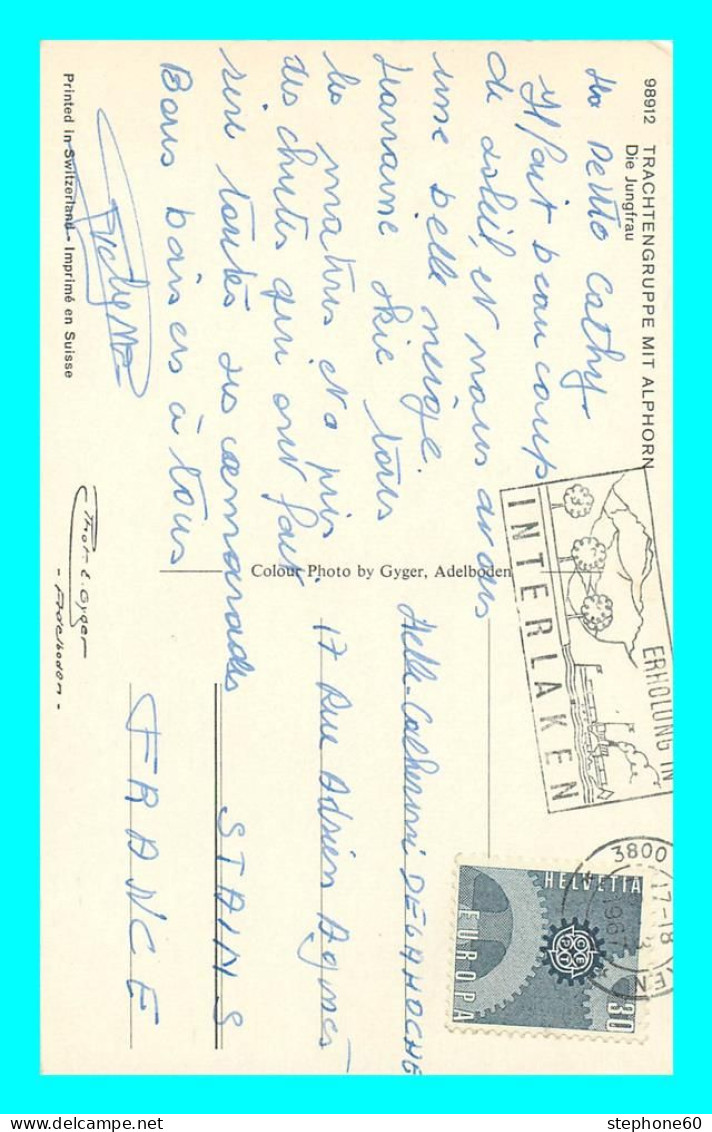 98912 TRACHTENGRUPPE MIT ALPHORN
Die Jungfrau
Ma Petite Cathy
Il fait beaucoup
de soleil, et nous avons
une belle neige.
skie tous
les matins et a pris
des chutes qui ont fait
rire toutes ses camarades
Bons baisers à tous
Colour Photo by Gyger, Adelboden
Printed in Switzerland - Imprimé en Suisse
Phot. E. Gyger
- Adelboden -
INTERLAKEN
ERHOLUNG IN
3800
17-18
1967
HELVETIA
EUROPA
CEPT
30
Melle Catherine DELAHOCHE
17 Rue Adrien Agnes
STAINS
FRANCE
stephone60